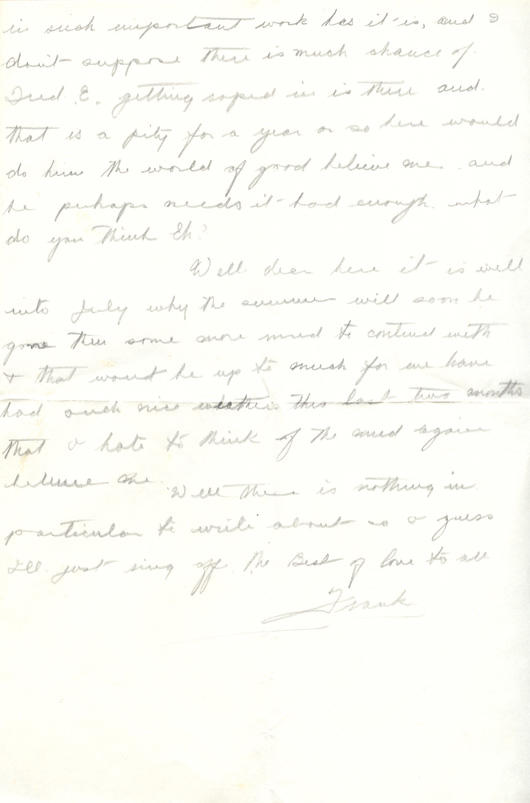 in such important work has it is, and I
don't suppose there is much chance of
Fred E. getting roped in is there and
that is a pity for a year or so here would
do him the world of good believe me and
he perhaps needs it bad enough. what
do you think Eh?
Well dear here it is well
into July why the summer will soon be
gone then some more mud to contend with
& that wont be up to much for we have
had such nice weather this last two months
that I hate to think of the mud again
believe me.
Well there is nothing in
particular to write about so I guess
Ill just sing off the Best of love to all
Frank